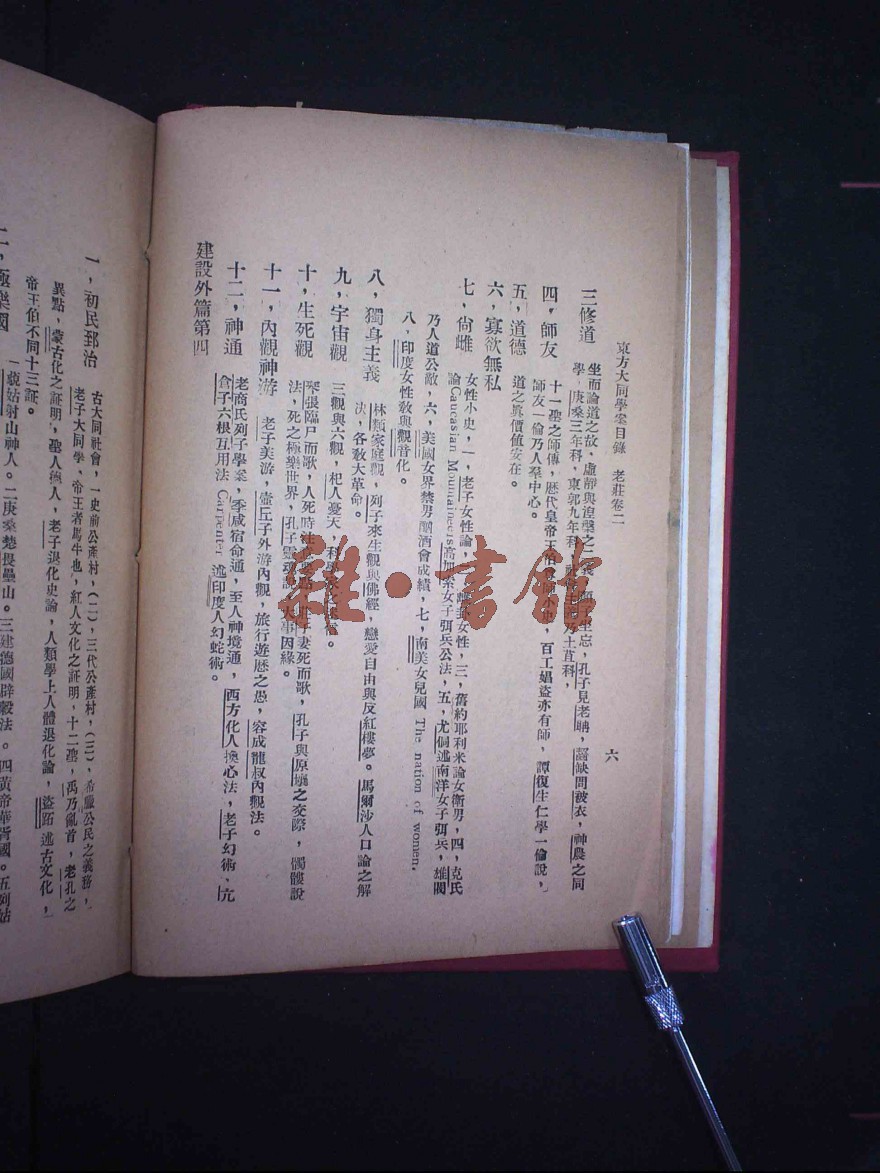 東方大同學案目錄 老莊卷二 六
三修道
坐而論道之故，虛靜與湼槃之 坐忘，孔子見老聃，齧缺問被衣，神農之同
學，庚桑三年科，東郭九年科， 乃土苴科，
四，師友 十一聖之師傅，歷代皇帝王伯 史，百工娼盜亦有師，譚復生仁學一倫說，
師友一倫乃人羣中心。
五，道德 道之眞價值安在。
六，寡欲無私
七，尙雌 女性小史，一，老子女性論， 女性，三，舊約耶利米論女衛男，四，克氏
論Caucasian Mountaineers高加索女子弭兵公法，五，尤侗述南洋女子弭兵，雄閥
乃人道公敵，六，美國女界禁男 酒會成績，七，南美女兒國 The nation of women,
八，印度女性敎與觀音化。
八，獨身主義 林類家庭觀，列子來生觀與佛經，戀愛自由與反紅樓夢。馬爾沙人口論之解
決，各敎大革命。
九，宇宙觀 三觀與六觀，杞人憂天，科學
十，生死觀 琴張臨尸而歌，人死時法 妻死而歌，孔子與原壤之交際，髑髏說
法，死之極樂世界，孔子靈魂說，大事因緣。
十一，內觀神游 老子美游，壺丘子外游內觀，旅行遊歷之愚，容成龍叔內觀法。
十二，神通 老商氏列子學案，季咸宿命通，至人神境通，西方化人換心法，老子幻術，亢
倉子六根互用法 Carpenter 述印度人幻蛇術。
建設外篇第四
一，初民郅治 古大同社會，一史前公產村，（二），三代公產村，（三），希臘公民之義務，
老子大同學，帝王者馬牛也，紅人文化之証明，十二聖，禹乃亂首，老孔之
異點，蒙古化之証明，聖人德人，老子退化史論，人類學上人體退化論，盜跖述古文化，
帝王伯不同十三証。
二，極樂國 一藐姑射山神人。二庚桑楚畏壘山。三建德國辟穀法。四黃帝華胥國。五列姑
雜·書館